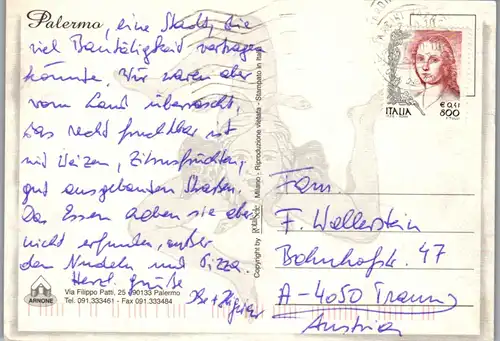 Palermo, eine Stadt, die
viel Bautätigkeit vertragen
könnte. Wir waren aber
vom Land überrascht,
das recht fruchtbar ist
mit Weizen, Zitrusfrüchten,
gut ausgebauten Straßen.
Das Essen haben sie aber
nicht erfunden, außer
den Nudeln und Pizza.
Herzl. Grüße
ARNONE
Via Filippo Patti, 25 - 90133 Palermo
Tel. 091.333461 - Fax 091.333484
Copyright by Milano - Riproduzione vietata - Stampato in Italia
ITALIA
€ 0,41
800
Fam.
F. Wallerstein
Bahnhofstr. 47
A-4050 Traun
Austria